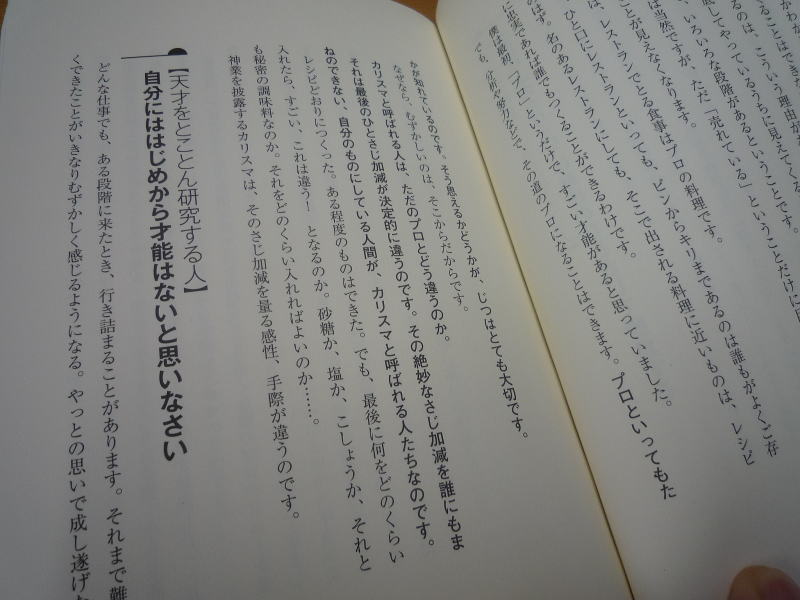 くることはできな
るのは、こういう理由が
底してやっているうちに見えてくる
いろいろな段階があるということです。
は当然ですが、ただ「売れている」ということだけに
ことが見えなくなります。
、レストランでとる食事はプロの料理です。
ひと口にレストランといっても、ピンからキリまであるのは誰もがよくご存
のはず。名のあるレストランにしても、そこで出される料理に近いものは、レシピ
に忠実であれば誰でもつくることができるわけです。
僕は最初、「プロ」というだけで、すごい才能があると思っていました。
でも、分析や努力などで、その道のプロになることはできます。プロといってもた
かが知れているのです。そう思えるかどうかが、じつはとても大切です。
なぜなら、むずかしいのは、そこからだからです。
カリスマと呼ばれる人は、ただのプロとどう違うのか。
それは最後のひとさじ加減が決定的に違うのです。その絶妙なさじ加減を誰にもま
ねのできない、自分のものにしている人間が、カリスマと呼ばれる人たちなのです。
レシピどおりにつくった。ある程度のものはできた。でも、最後に何をどのくらい
入れたら、すごい、これは違う! となるのか。砂糖か、塩か、こしょうか、それと
も秘密の調味料なのか。それをどのくらい入れればよいのか……。
神業を披露するカリスマは、そのさじ加減を量る感性、手際が違うのです。
【天才をとことん研究する人】
自分にははじめから才能はないと思いなさい
どんな仕事でも、ある段階に来たとき、行き詰まることがあります。それまで難
くできたことがいきなりむずかしく感じるようになる。やっとの思いで成し遂げ